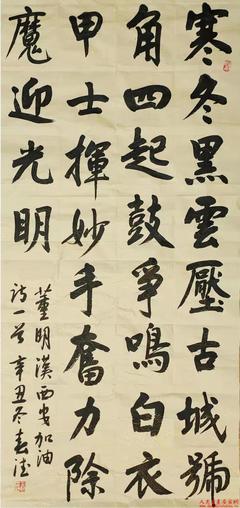 寒冬黑雲壓古城號
角四起鼓爭鳴白衣
甲士揮妙手奮力除
魔迎光明
董明漢西安加油
詩一首辛丑冬春法